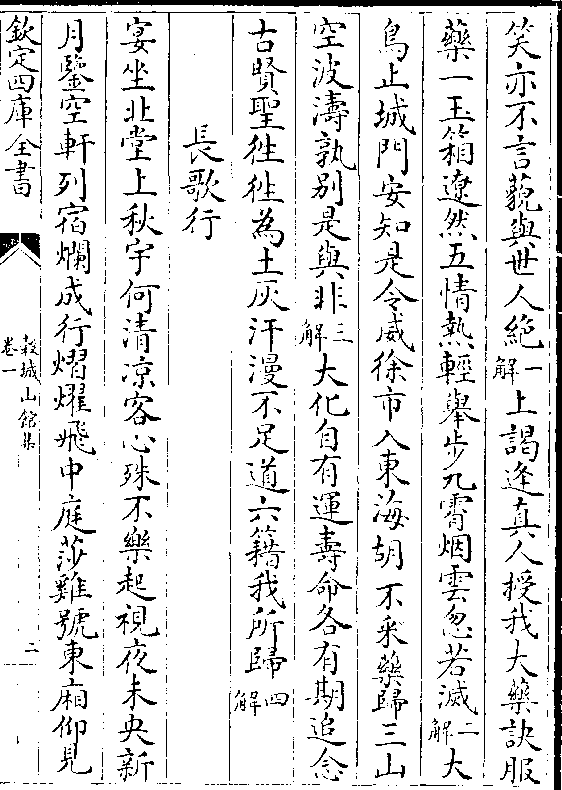 笑亦不言藐與世人絶一解上謁逢真人授我大藥訣服
藥一玉箱遼然五情熱輕舉步九霄烟雲忽若滅二解大
鳥止城門安知是令威徐市入東海胡不采藥歸三山
空波濤孰别是與非三解大化自有運壽命各有期追念
古賢聖徃徃為土灰汗漫不足道六籍我所歸四解
長歌行
宴坐北堂上秋宇何清凉客心殊不樂起視夜未央新
月鑒空軒列宿爛成行熠燿飛中庭莎雞號東廂仰見
欽定四庫全書
榖城山館集
卷一
二